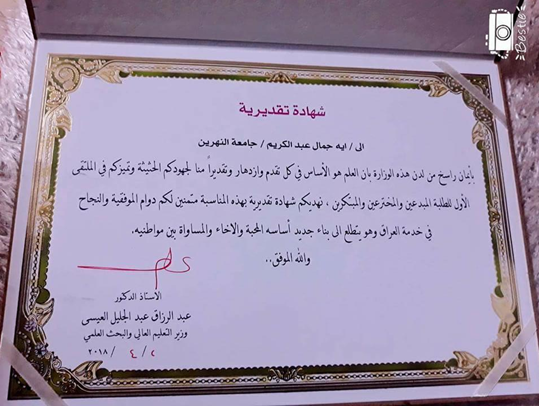 Bestie
شهادة تقديرية
الى / ايه جمال عبد الكريم / جامعة النهرين
بأيمان راسخ من لدن هذه الوزارة بان العلم هو الأساس في كل تقدم وازدهار وتقديراً منا لجهودكم الحثيثة وتميزكم في الملتقى
الأول للطلبة المبدعين والمخترعين والمبتكرين ، نهديكم شهادة تقديرية بهذه المناسبة متمنين لكم دوام الموفقية والنجاح
في خدمة العراق وهو يتطلع الى بناء جديد أساسه المحبة والاخاء والمساواة بين مواطنيه.
والله الموفق..
الاستاذ الدكتور
عبد الرزاق عبد الجليل العيسى
وزير التعليم العالي والبحث العلمي
٢ / ٤ / ٢٠١٨